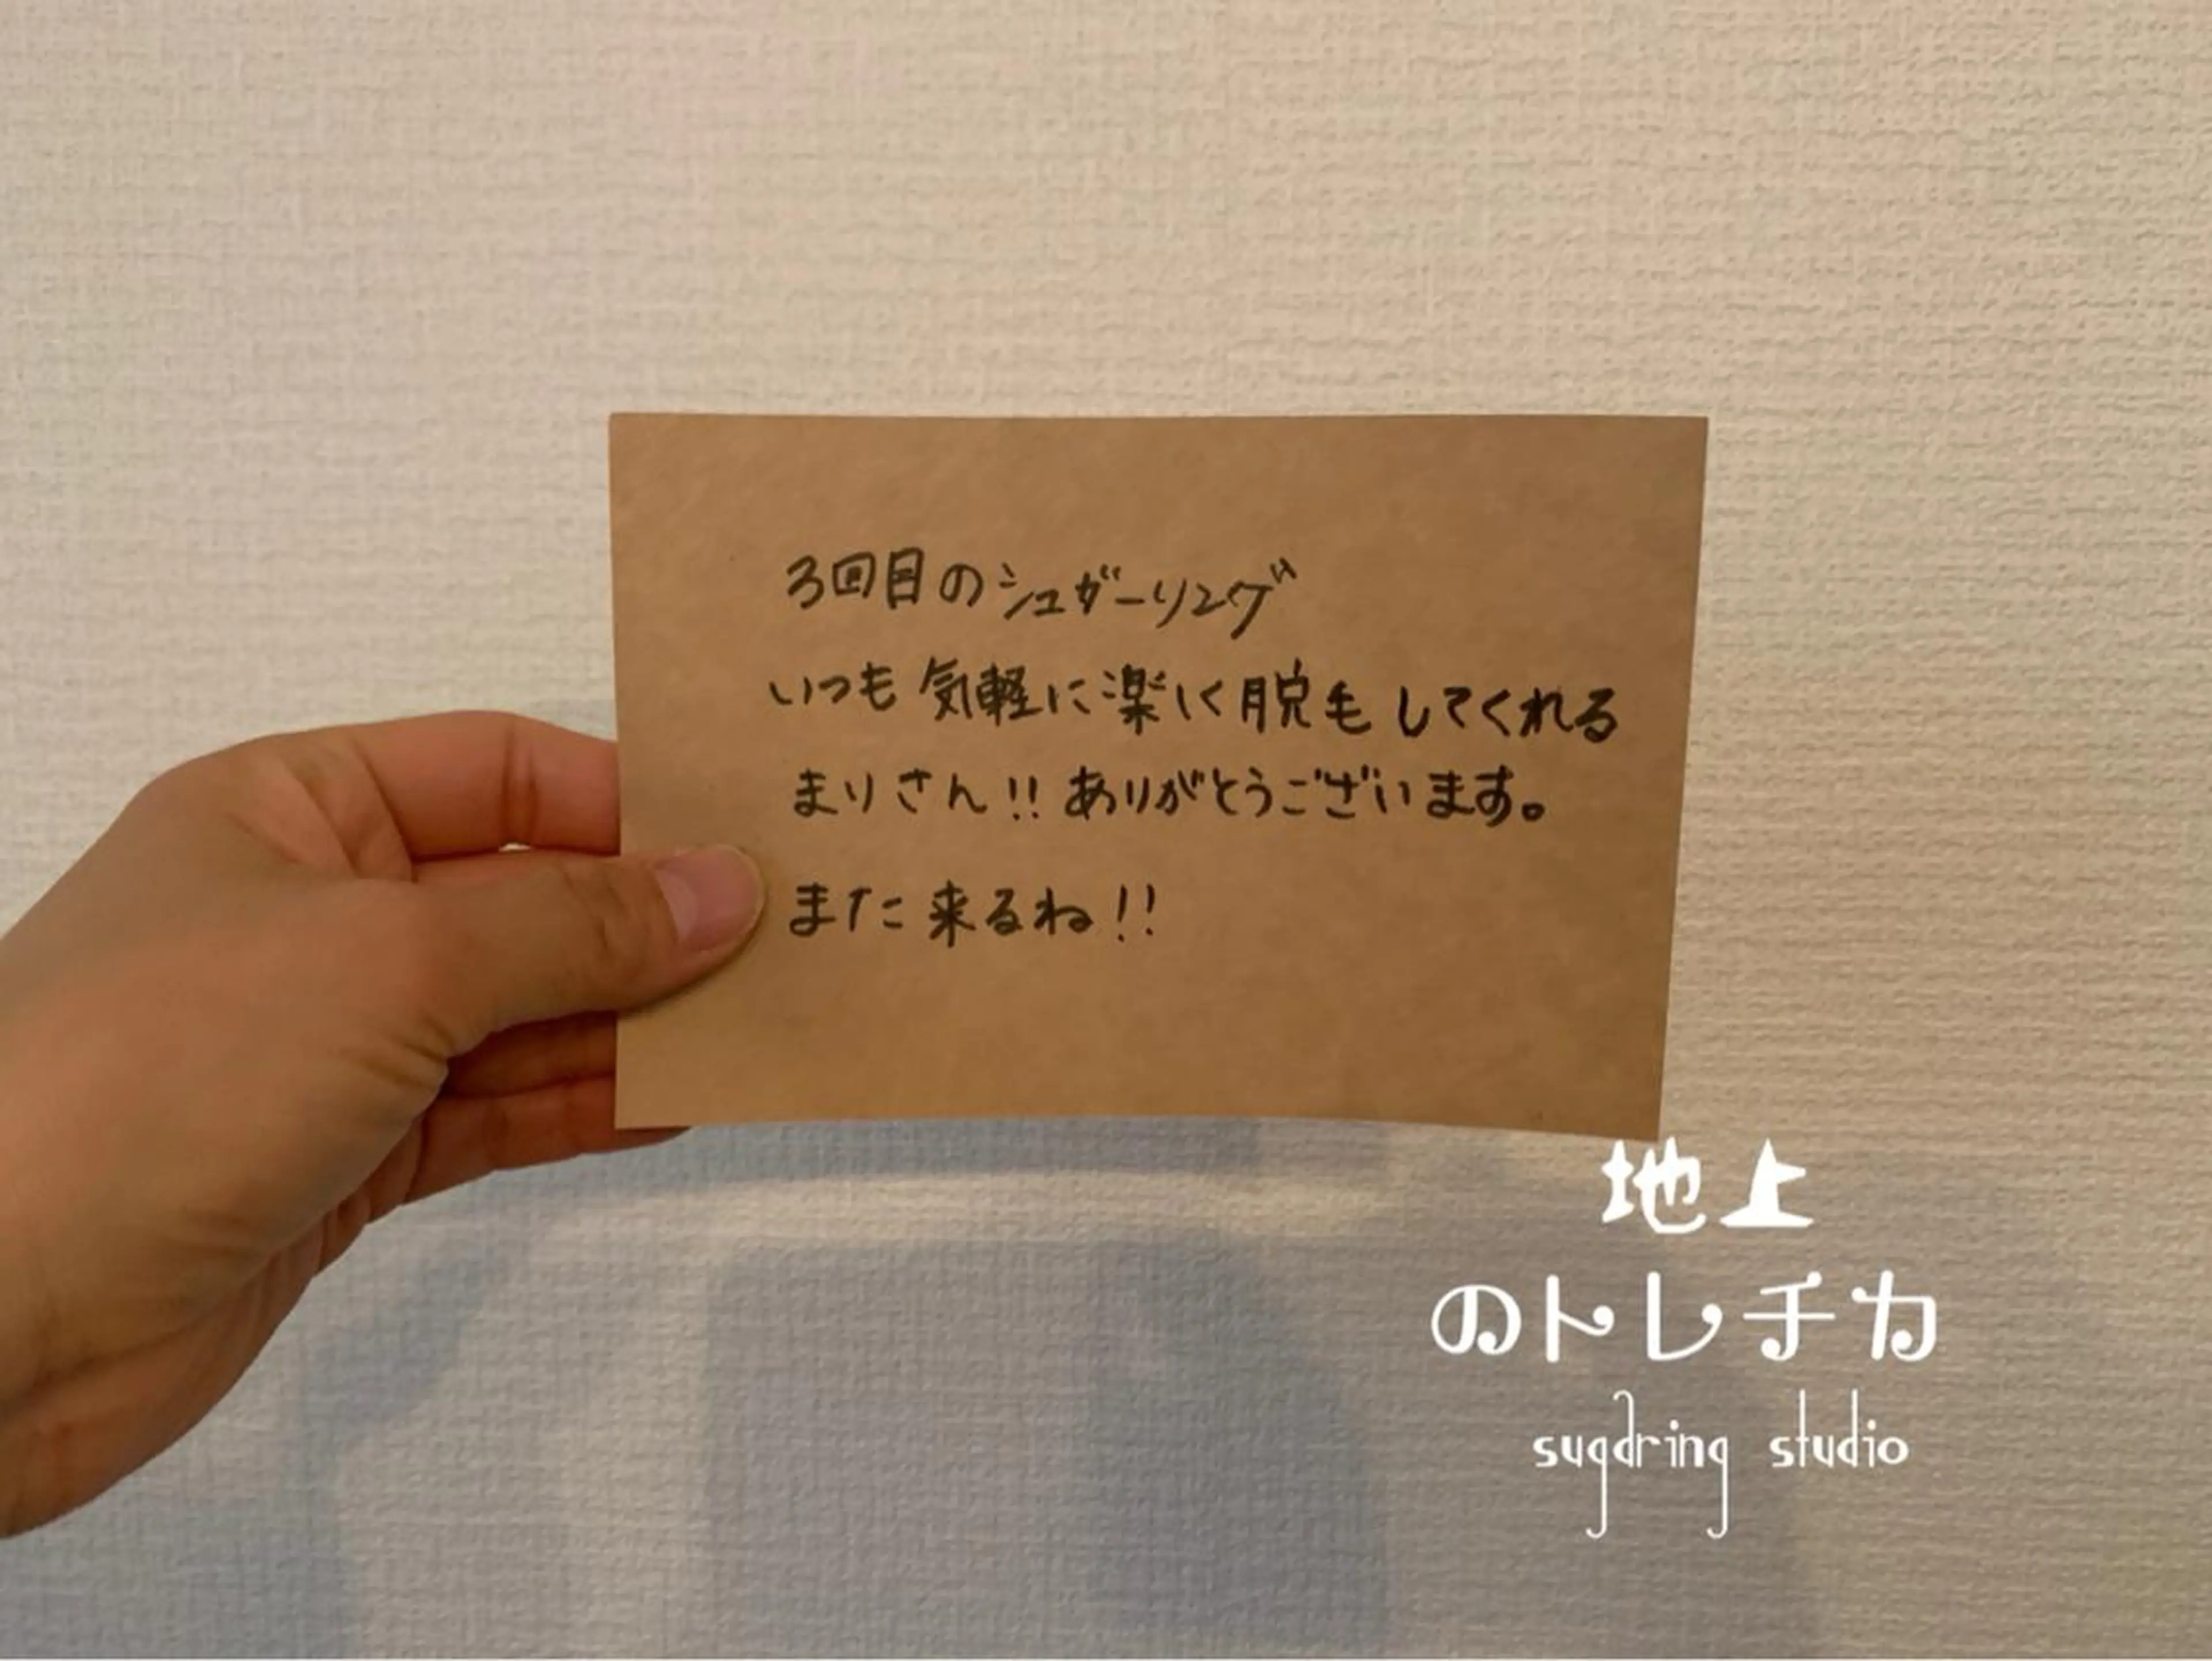 3回目のシュガーリング
いつも気軽に楽しく脱毛してくれる
まりさん!!ありがとうございます。
また来るね!!
地上
のトレチカ
sugaring studio